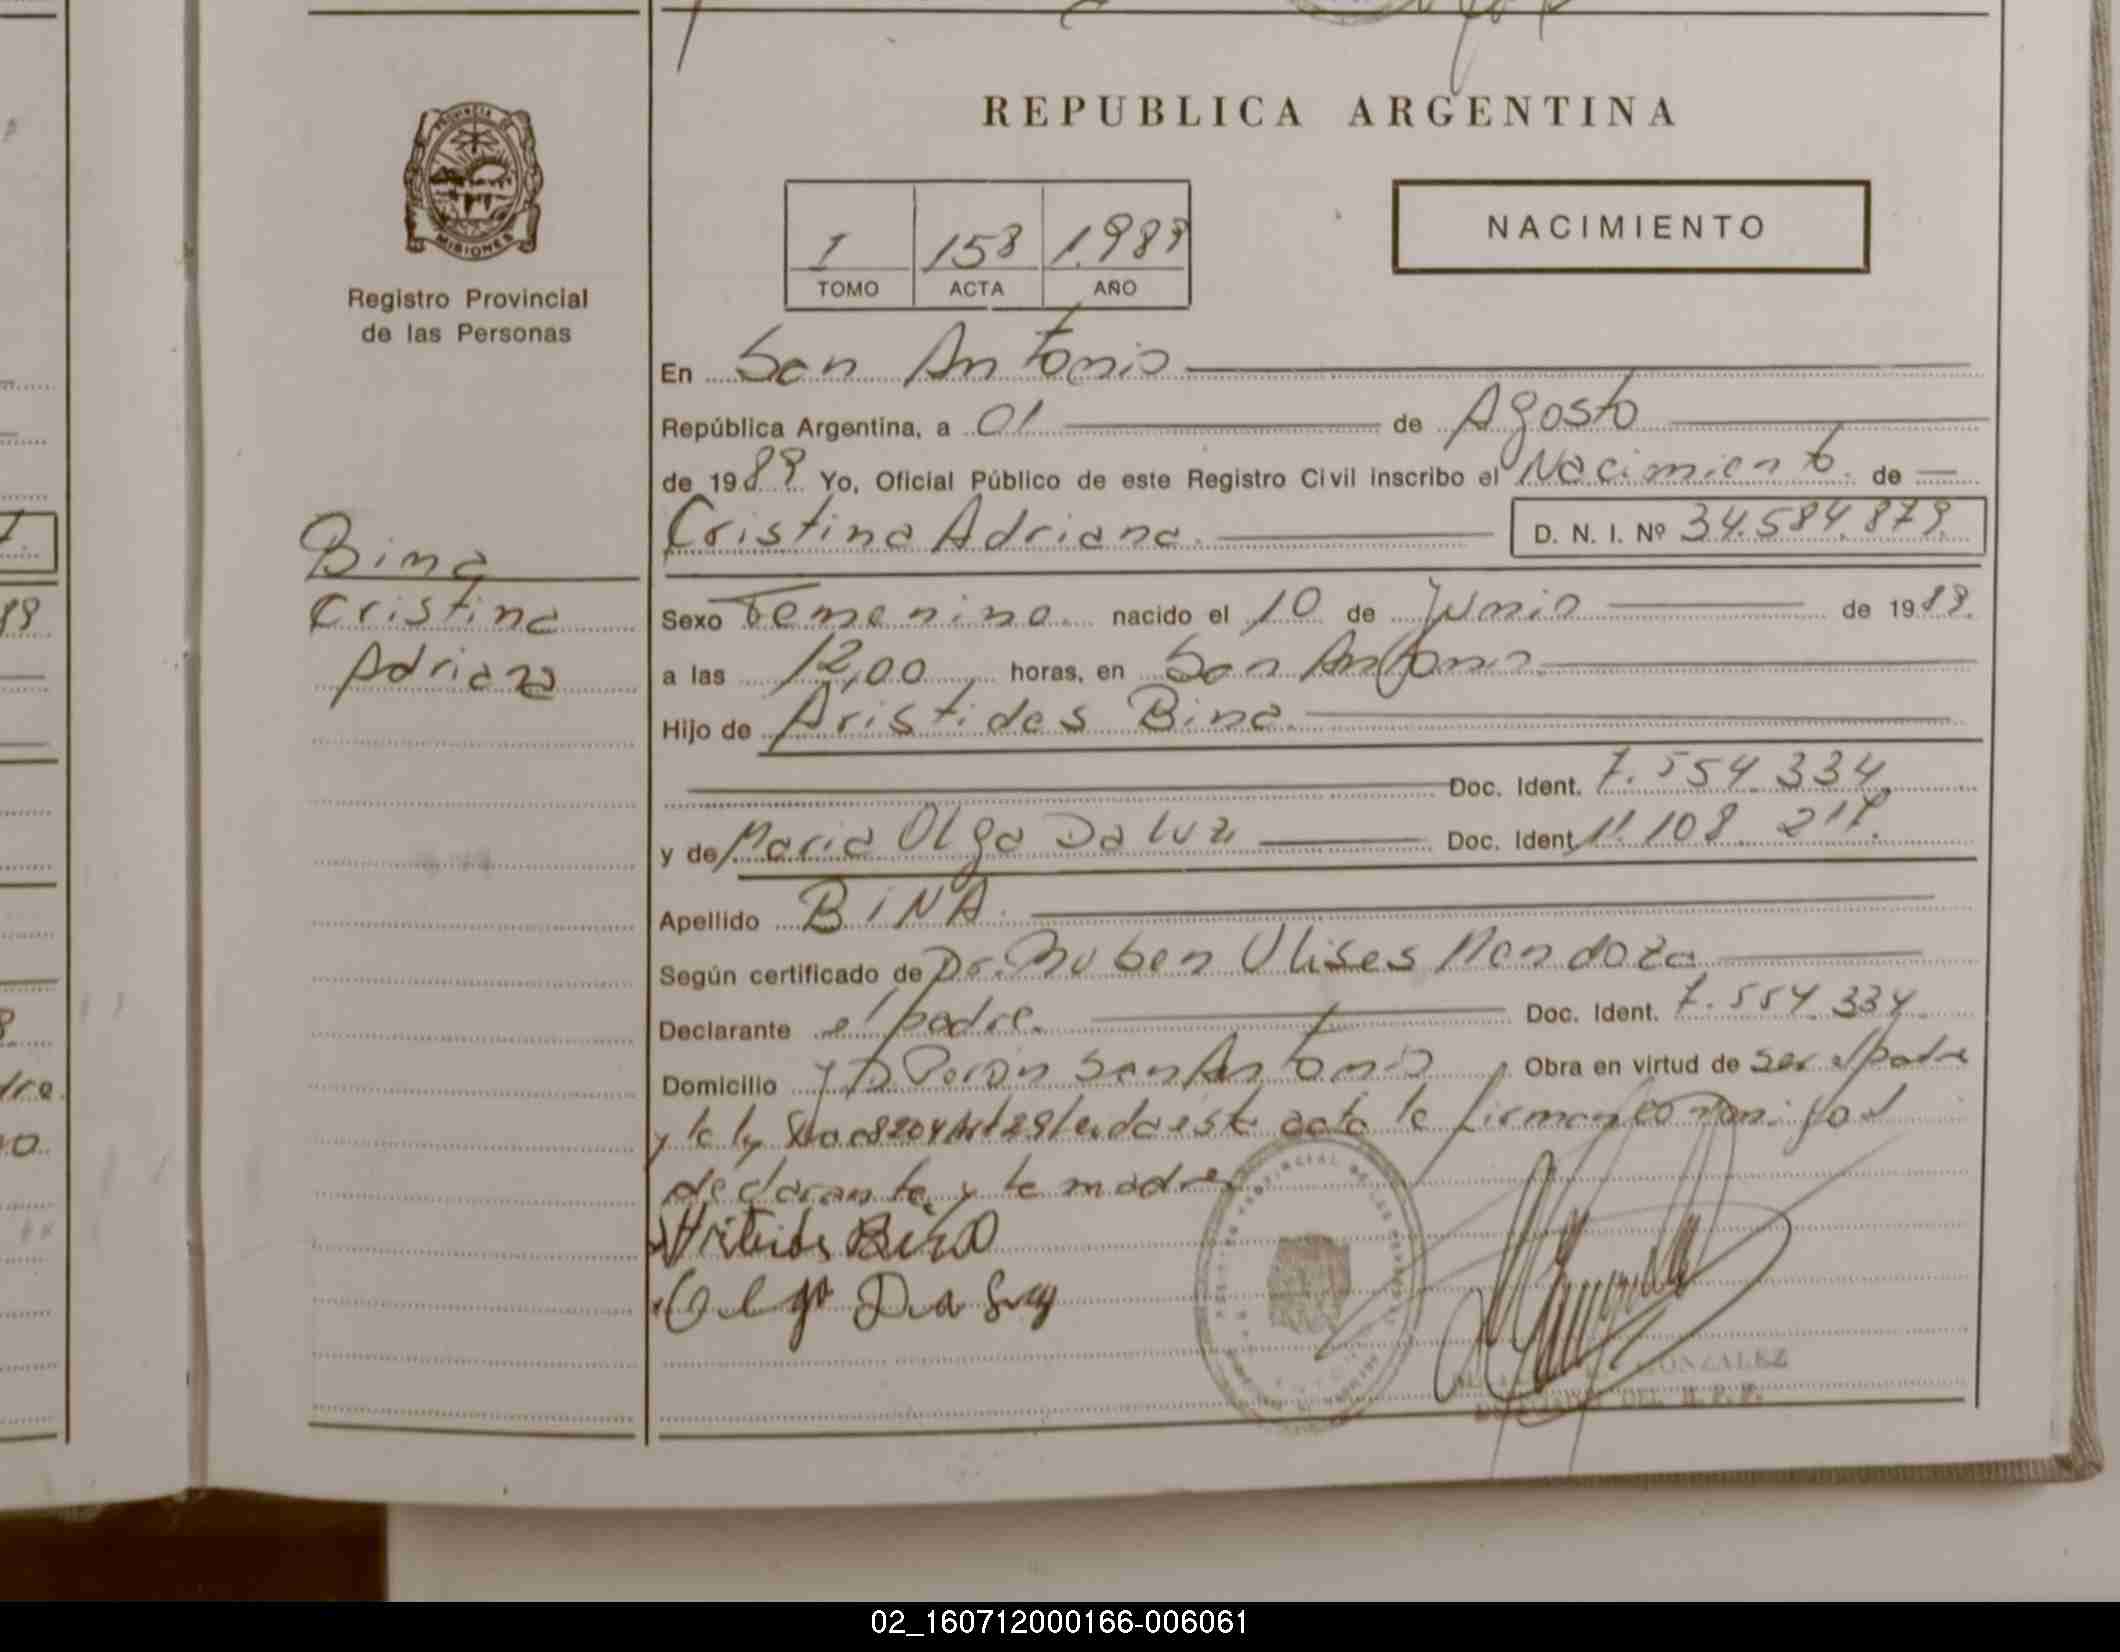 REPUBLICA ARGENTINA
PROVINCIA DE
MISIONES
Registro Provincial
de las Personas
NACIMIENTO
I 158 1.989
TOMO ACTA AÑO
En San Antonio
República Argentina, a 01 de Agosto
de 1989 Yo, Oficial Público de este Registro Civil inscribo el Nacimiento de
Cristina Adriana D. N. I. Nº 34.584.879.
Bina
Cristina
Adriana
Sexo Femenino nacido el 10 de Junio de 1989.
a las 12,00 horas, en San Antonio
Hijo de Aristides Bina
Doc. Ident. 7.554.334.
y de Maria Olga Da luz Doc. Ident. 11.108.217.
Apellido BINA
Según certificado de Dr. Ruben Ulises Mendoza
Declarante el padre. Doc. Ident. 7.554.334
Domicilio J D Peron San Antonio Obra en virtud de ser el padre
y la ley 8204 Art 29 leida esta acta la firman conmigo el
declarante y la madre
Aritides Bina
Olga Da Luz
GONZALEZ
DEL R. P. P.
02_160712000166-006061